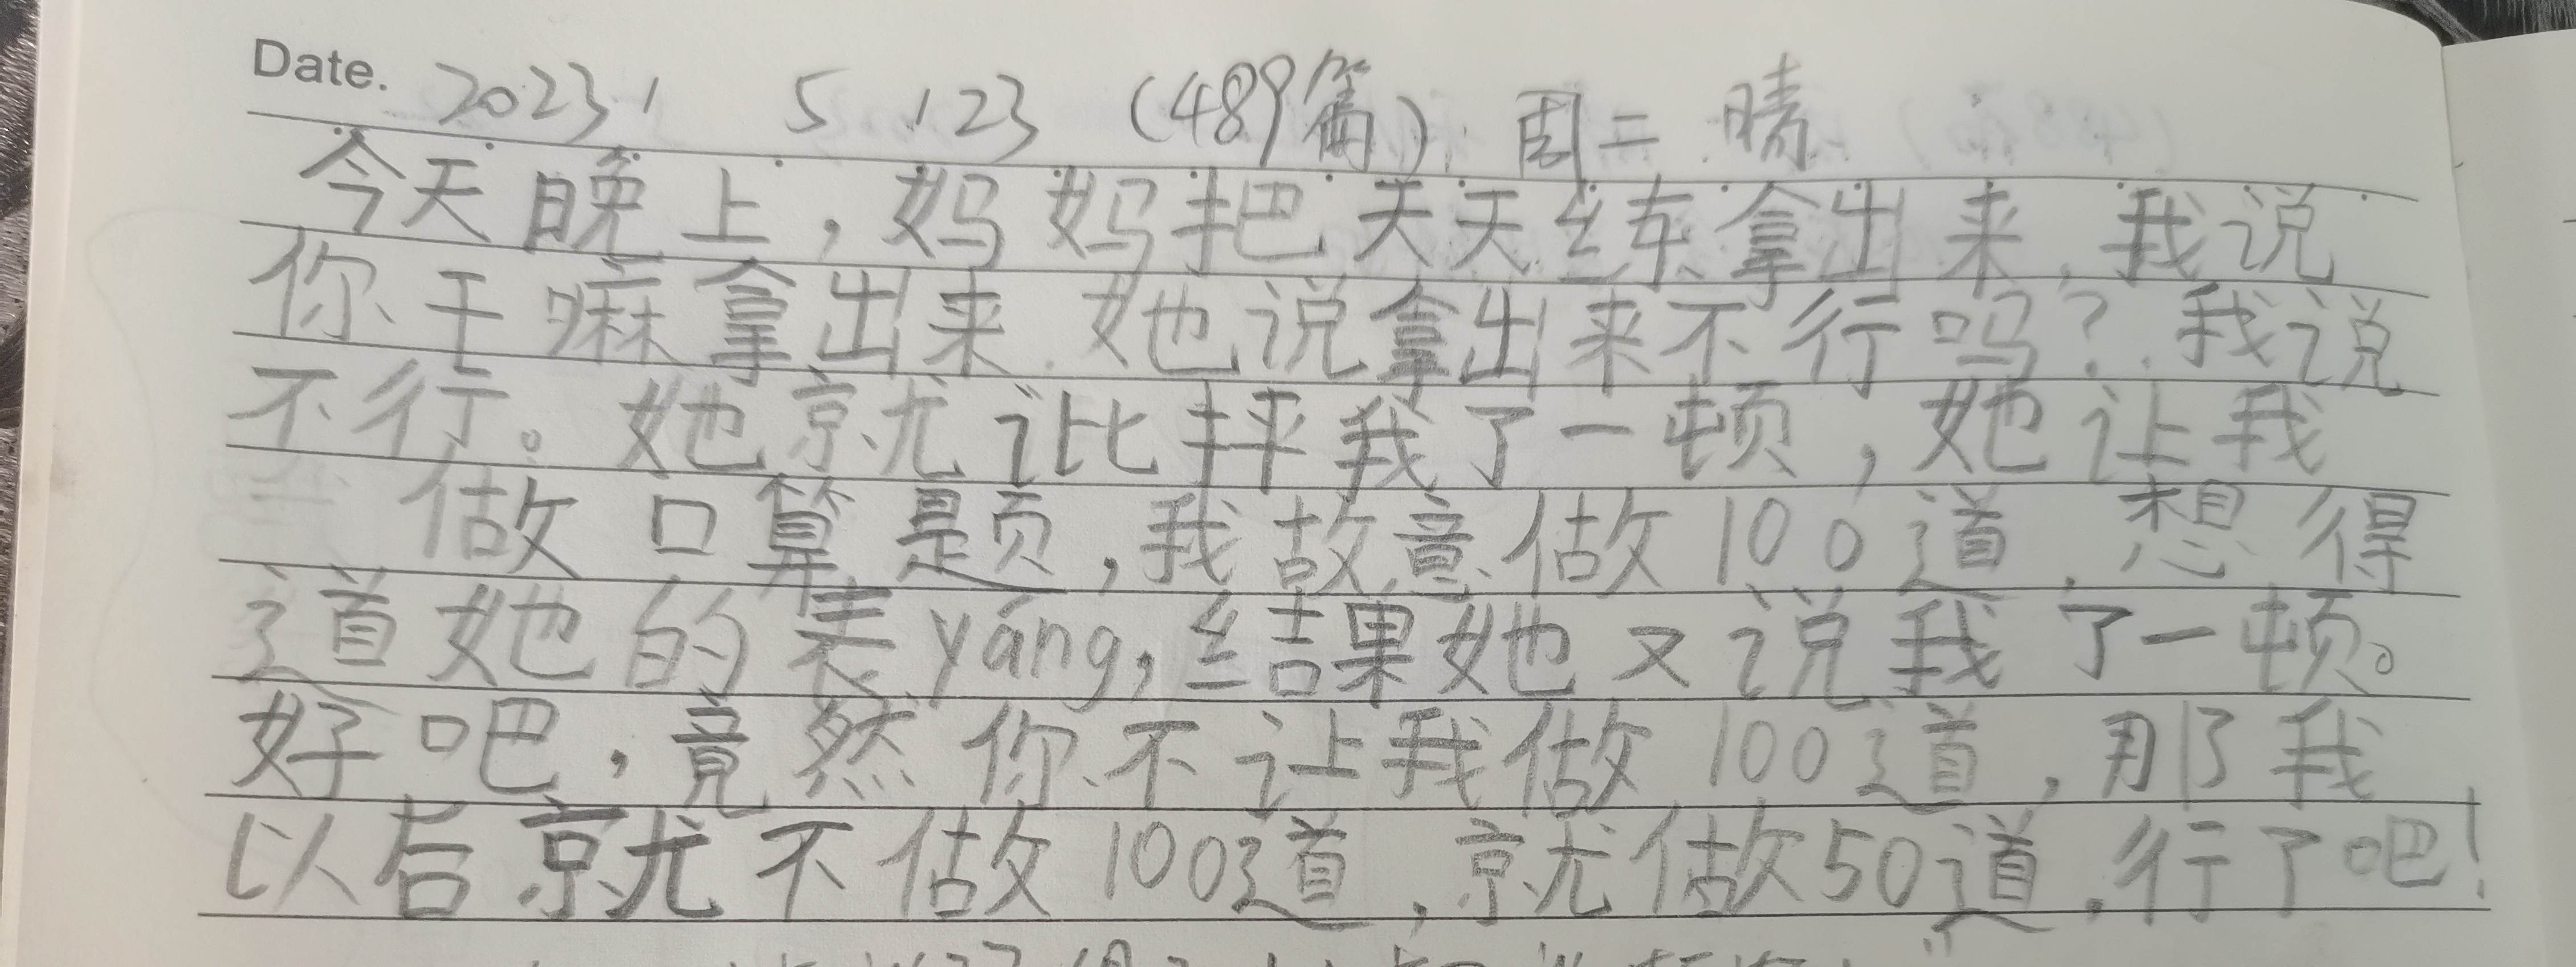 Date. 2023、 5 、23 (489篇) 周二 晴
今天晚上，妈妈把天天练拿出来，我说
你干嘛拿出来，她说拿出来不行吗？我说
不行。她就批抨我了一顿，她让我
做口算题，我故意做100道，想得
道她的表yáng，结果她又说我了一顿。
好吧，竟然你不让我做100道，那我
以后就不做100道，就做50道，行了吧！